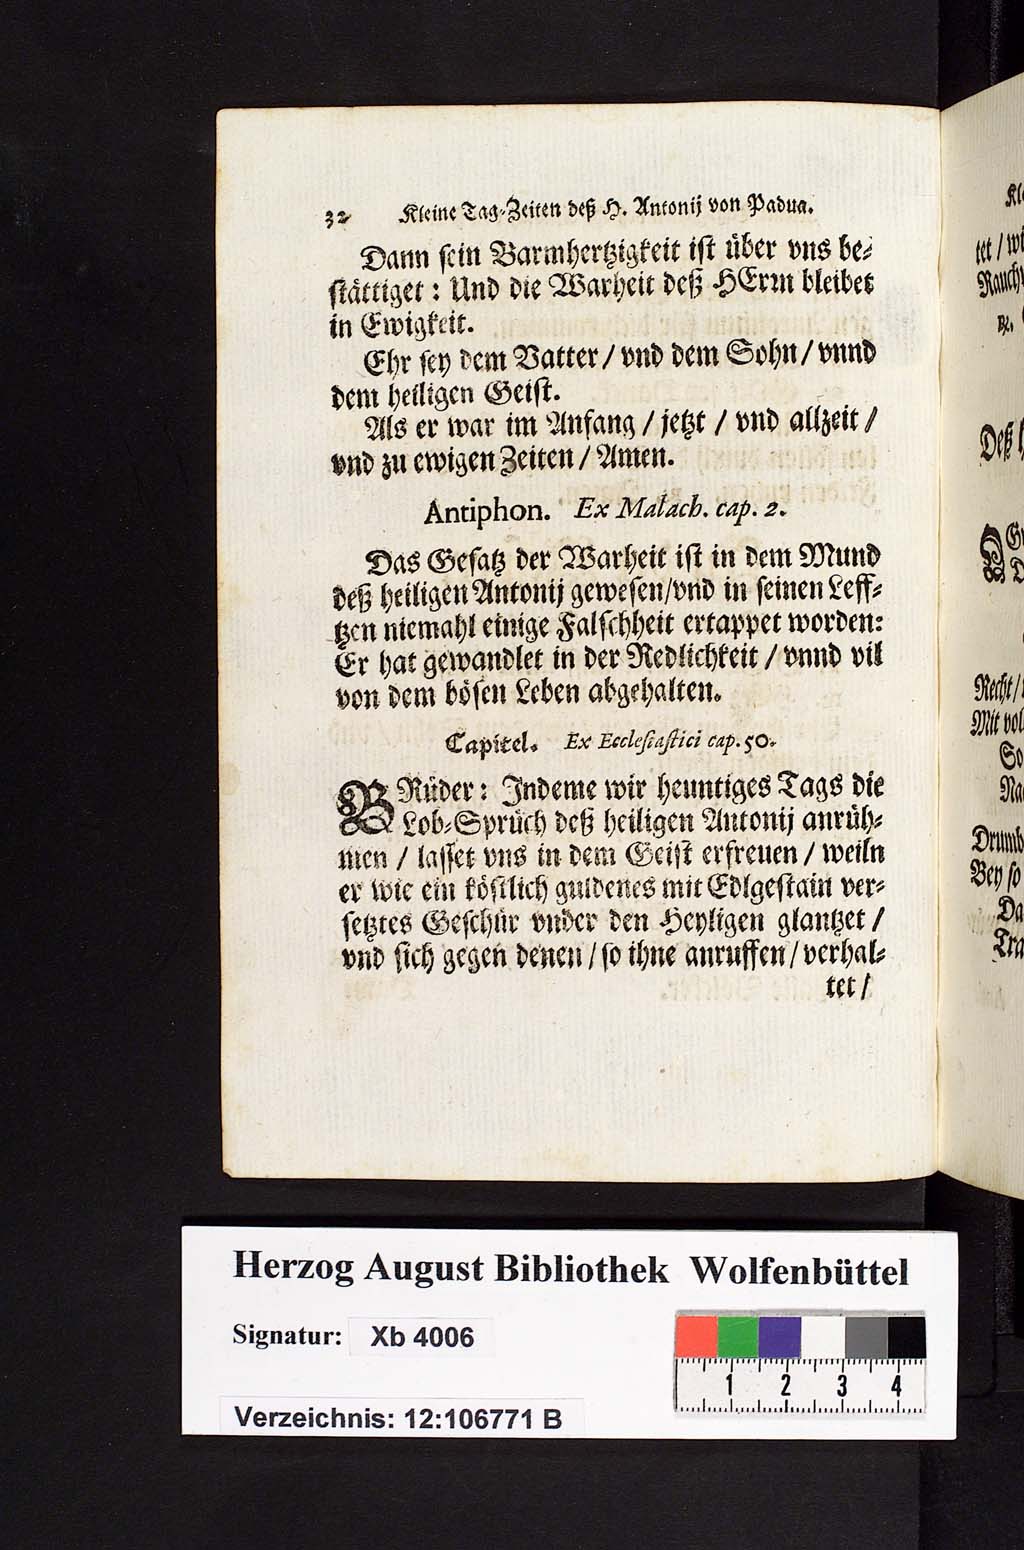 32 Kleine Tag-Zeiten deß H. Antonij von Padua.
Dann sein Barmhertzigkeit ist über vns be-
stättiget: Und die Warheit deß HErrn bleibet
in Ewigkeit.
Ehr sey dem Vatter / vnd dem Sohn / vnnd
dem heiligen Geist.
Als er war im Anfang / jetzt / vnd allzeit /
vnd zu ewigen Zeiten / Amen.
Antiphon. Ex Malach. cap. 2.
Das Gesatz der Warheit ist in dem Mund
deß heiligen Antonij gewesen/vnd in seinen Leff-
tzen niemahl einige Falschheit ertappet worden:
Er hat gewandlet in der Redlichkeit / vnnd vil
von dem bösen Leben abgehalten.
Capitel. Ex Ecclesiastici cap. 50.
BRüder: Indeme wir heuntiges Tags die
Lob-Sprüch deß heiligen Antonij anrüh-
men / lasset vns in dem Geist erfreuen / weiln
er wie ein köstlich guldenes mit Edlgestain ver-
setztes Geschür vnder den Heyligen glantzet /
vnd sich gegen denen / so ihne anruffen / verhal-
tet /
Kle
tet / wi
Rauch
Deß h
Recht /
Mit vol
So
Na
Drumb
Bey so
Da
Tra
Herzog August Bibliothek Wolfenbüttel
Signatur: Xb 4006
1 2 3 4
Verzeichnis: 12:106771 B